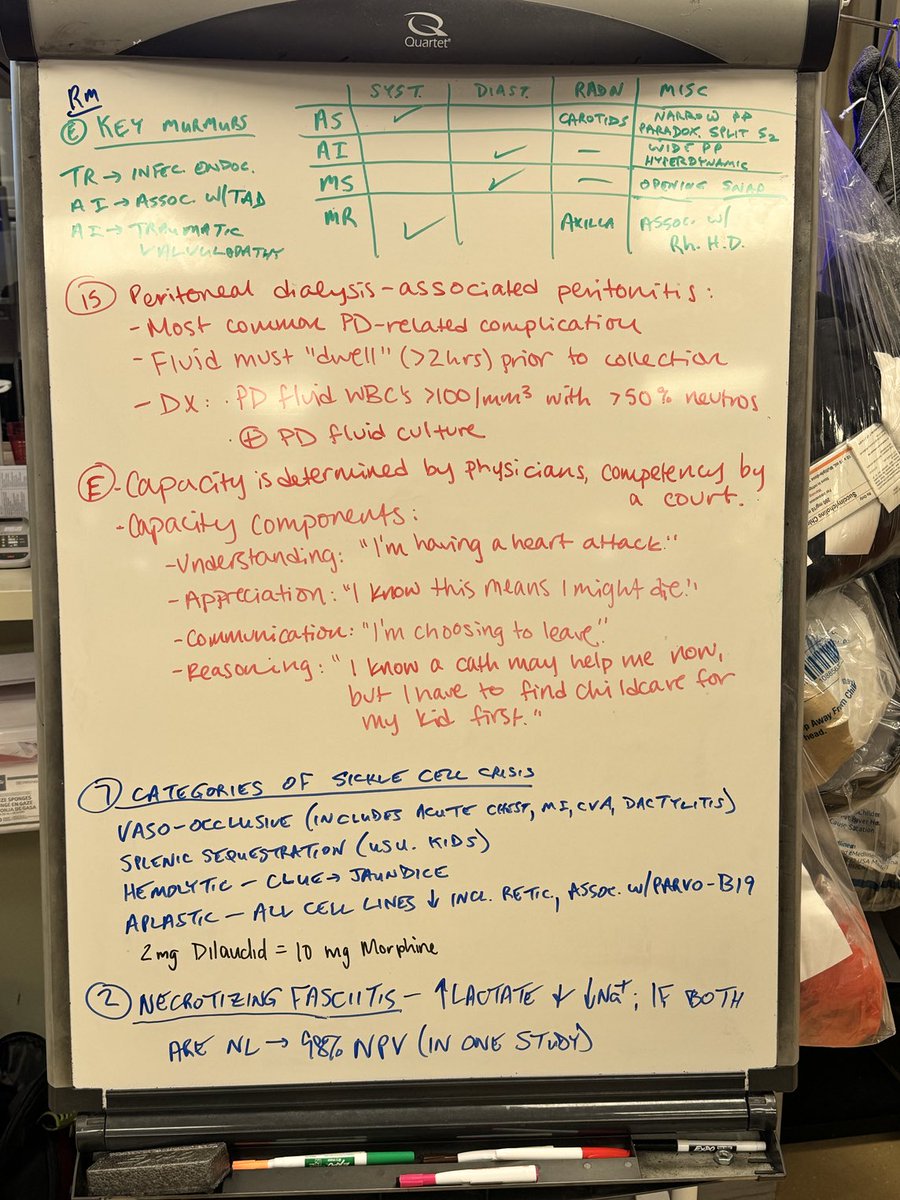 Quartet
RM
E KEY MURMURS
TR → INFEC ENDOC.
AI → ASSOC. W/ TAD
AI → TRAUMATIC
VALVULOPATHY
SYST. DIAST. RADN MISC
AS ✓ CAROTIDS NARROW PP
PARADOX. SPLIT S2
AI ✓ — WIDE PP
HYPERDYNAMIC
MS ✓ — OPENING SNAP
MR ✓ AXILLA ASSOC. W/
Rh. H.D.
15 Peritoneal dialysis-associated peritonitis:
- Most common PD-related complication
- Fluid must "dwell" (>2hrs) prior to collection
- DX: · PD fluid WBC's >100/mm³ with >50% neutros
· ⊕ PD fluid culture
E - Capacity is determined by physicians, competency by
a court.
- Capacity components:
- Understanding: "I'm having a heart attack."
- Appreciation: "I know this means I might die."
- Communication: "I'm choosing to leave."
- Reasoning: "I know a cath may help me now,
but I have to find childcare for
my kid first."
7 CATEGORIES OF SICKLE CELL CRISIS
VASO-OCCLUSIVE (INCLUDES ACUTE CHEST, MI, CVA, DACTYLITIS)
SPLENIC SEQUESTRATION (USU. KIDS)
HEMOLYTIC - CLUE → JAUNDICE
APLASTIC - ALL CELL LINES ↓ INCL. RETIC, ASSOC. W/ PARVO-B19
2mg Dilaudid = 10 mg Morphine
2 NECROTIZING FASCIITIS - ↑LACTATE + ↓Na+; IF BOTH
ARE NL → 98% NPV (IN ONE STUDY)
EXPO